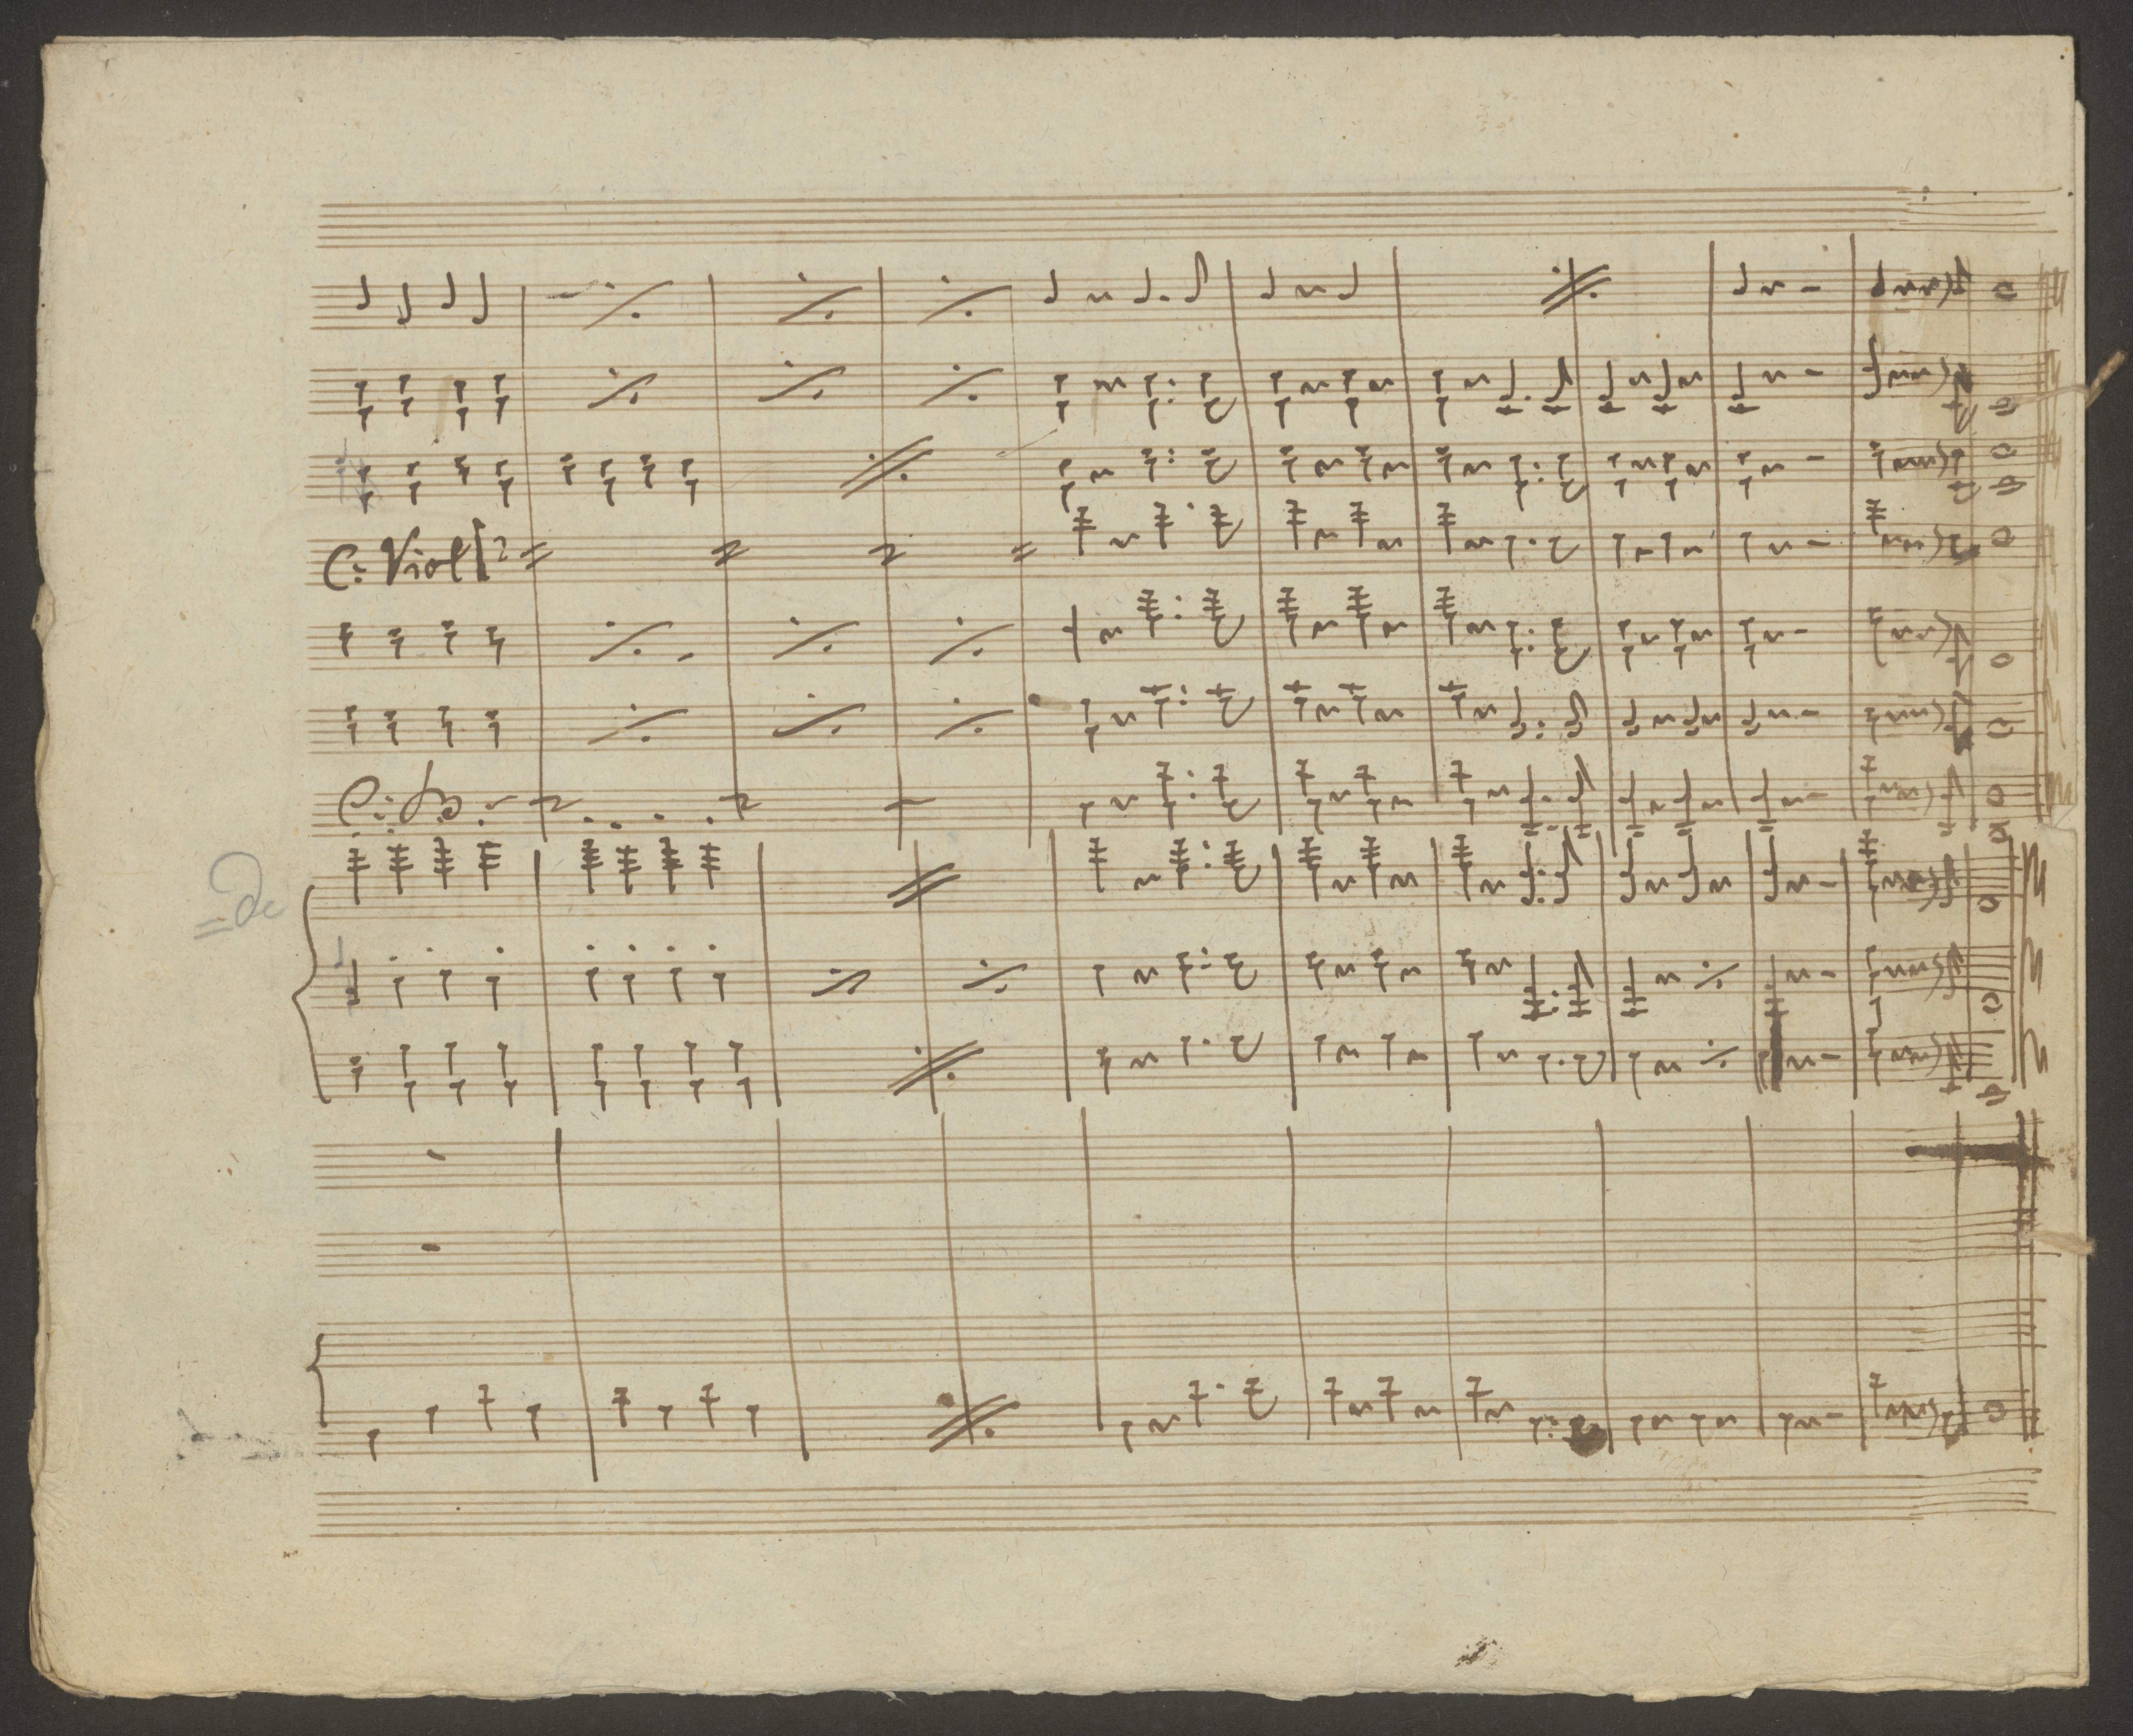 C: Viol 2
C: B:
=de